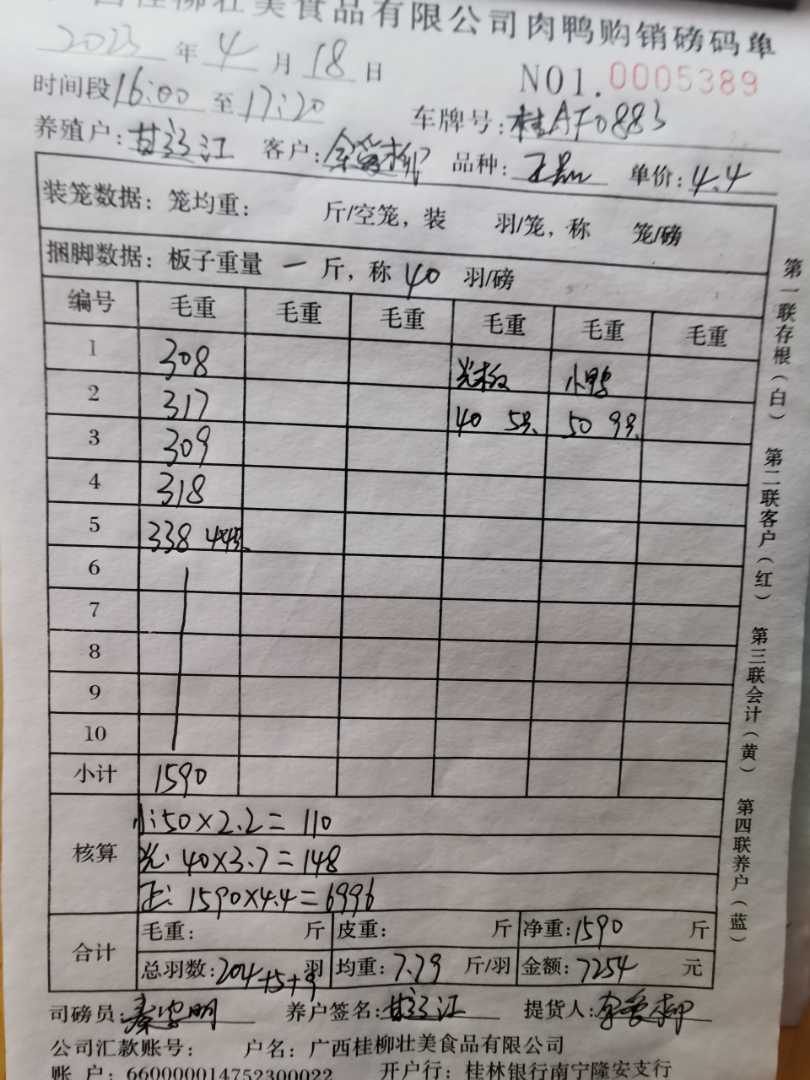 西桂柳壮美食品有限公司肉鸭购销磅码单
2023 年 4 月 18 日
NO1.0005389
时间段16:00 至17:20
车牌号:桂AF0883
养殖户: 甘 江 客户: 柳 品种: 单价:4.4
装笼数据: 笼均重: 斤/空笼, 装 羽/笼, 称 笼/磅
捆脚数据: 板子重量 一 斤, 称 40 羽/磅
编号 毛重 毛重 毛重 毛重 毛重 毛重
1 308 光板 小鸭
2 317 40 5只 50 9只
3 309
4 318
5 338 44只
6
7
8
9
10
小计 1590
核算
小:50×2.2=110
光:40×3.7=148
正:1590×4.4=6996
合计
毛重: 斤 皮重: 斤 净重:1590 斤
总羽数:204+5+9 羽 均重:7.79 斤/羽 金额:7254 元
司磅员: 秦 明 养户签名:甘 江 提货人: 柳
公司汇款账号: 户名:广西桂柳壮美食品有限公司
账 户:660000014752300022 开户行:桂林银行南宁隆安支行
第一联存根(白) 第二联客户(红) 第三联会计(黄) 第四联养户(蓝)